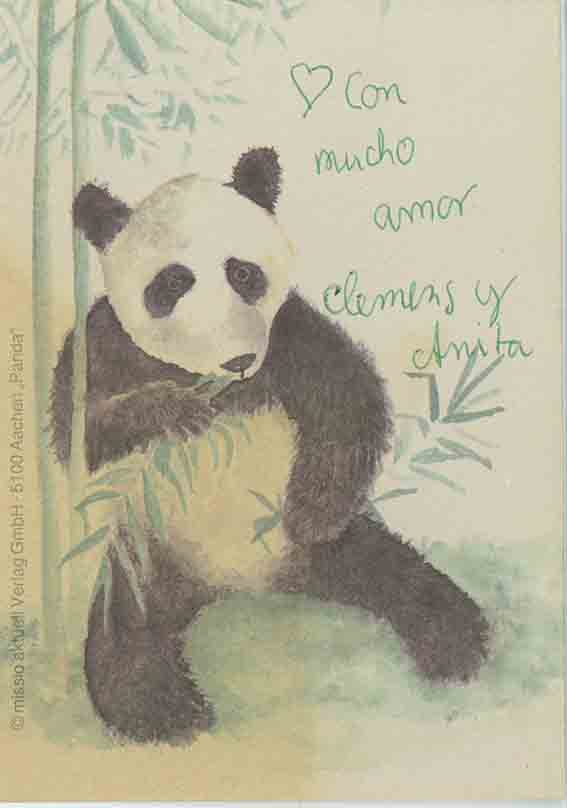 ♡ Con
mucho
amor
Clemens y
Anita
© missio aktuell Verlag GmbH · 5100 Aachen „Panda“